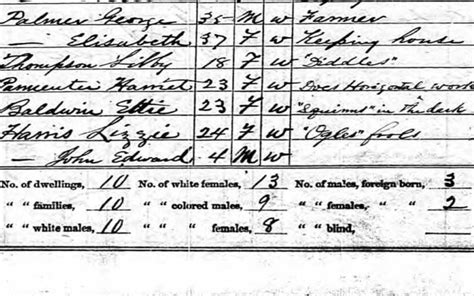 Palmer George 35 M W Farmer
— Elisabeth 37 F W Keeping house
Thompson Libby 18 F W "Fiddles"
Parmenter Harriet 23 F W Does Horizontal work
Baldwin Ettie 23 F W "Squirms" in the dark
Harris Lizzie 24 F W "Ogles" fools
— John Edward 4 M W
No. of dwellings, 10 No. of white females, 13 No. of males, foreign born, 3
" " families, 10 " " colored males, 9 " " females, " " 2
" " white males, 10 " " females, 8 " " blind,